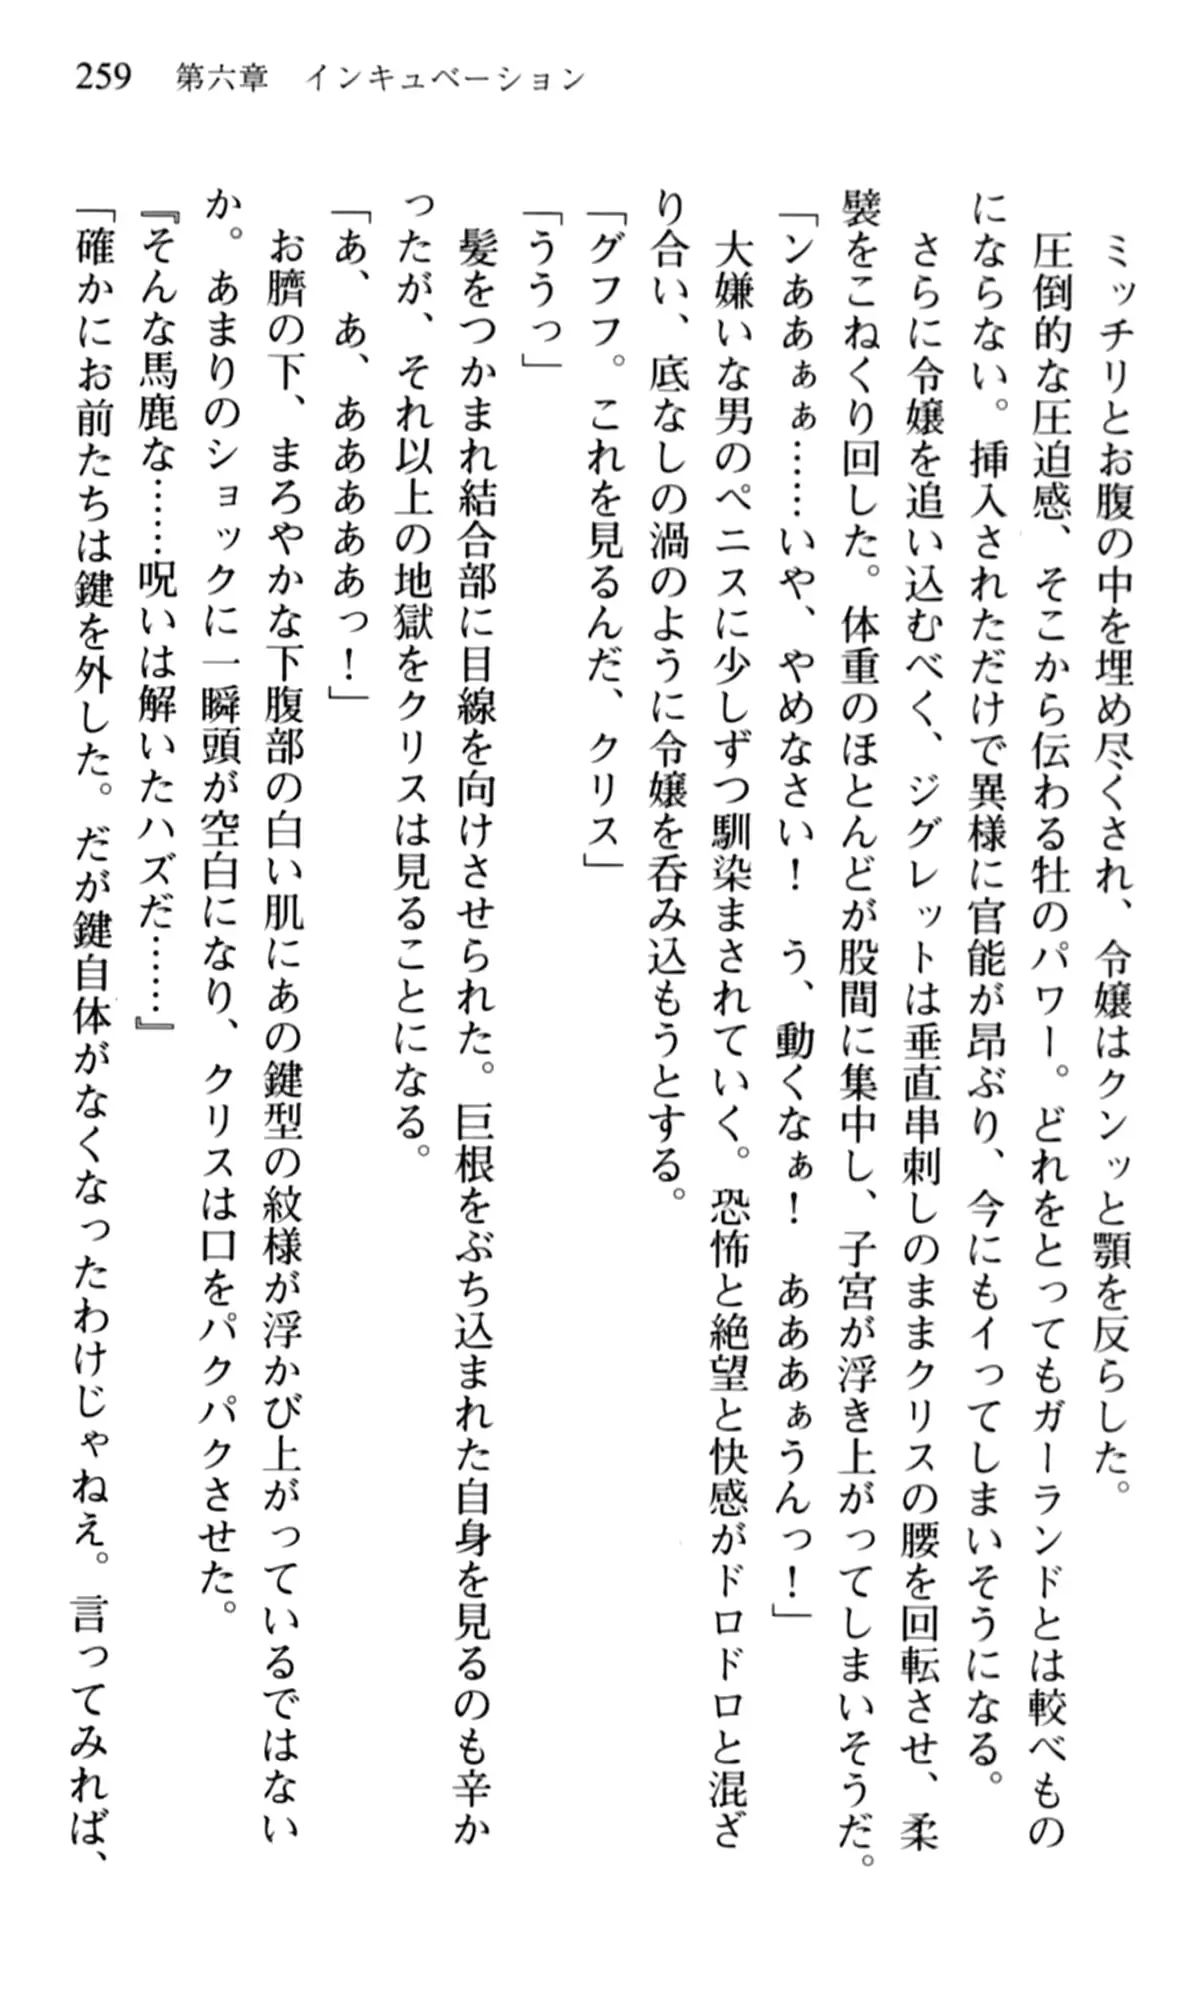 259 第六章 インキュベーション
ミッチリとお腹の中を埋め尽くされ、令嬢はクンッと顎を反らした。
圧倒的な圧迫感、そこから伝わる牡のパワー。どれをとってもガーランドとは較べもの
にならない。挿入されただけで異様に官能が昂ぶり、今にもイってしまいそうになる。
さらに令嬢を追い込むべく、ジグレットは垂直串刺しのままクリスの腰を回転させ、柔
襞をこねくり回した。体重のほとんどが股間に集中し、子宮が浮き上がってしまいそうだ。
「ンあぁぁ……いや、やめなさい！　う、動くなぁ！　あああぁうんっ！」
大嫌いな男のペニスに少しずつ馴染まされていく。恐怖と絶望と快感がドロドロと混ざ
り合い、底なしの渦のように令嬢を呑み込もうとする。
「グフフ。これを見るんだ、クリス」
「ううっ」
髪をつかまれ結合部に目線を向けさせられた。巨根をぶち込まれた自身を見るのも辛か
ったが、それ以上の地獄をクリスは見ることになる。
「あ、あ、あああああっ！」
お臍の下、まろやかな下腹部の白い肌にあの鍵型の紋様が浮かび上がっているではない
か。あまりのショックに一瞬頭が空白になり、クリスは口をパクパクさせた。
『そんな馬鹿な……呪いは解いたハズだ……』
「確かにお前たちは鍵を外した。だが鍵自体がなくなったわけじゃねえ。言ってみれば、